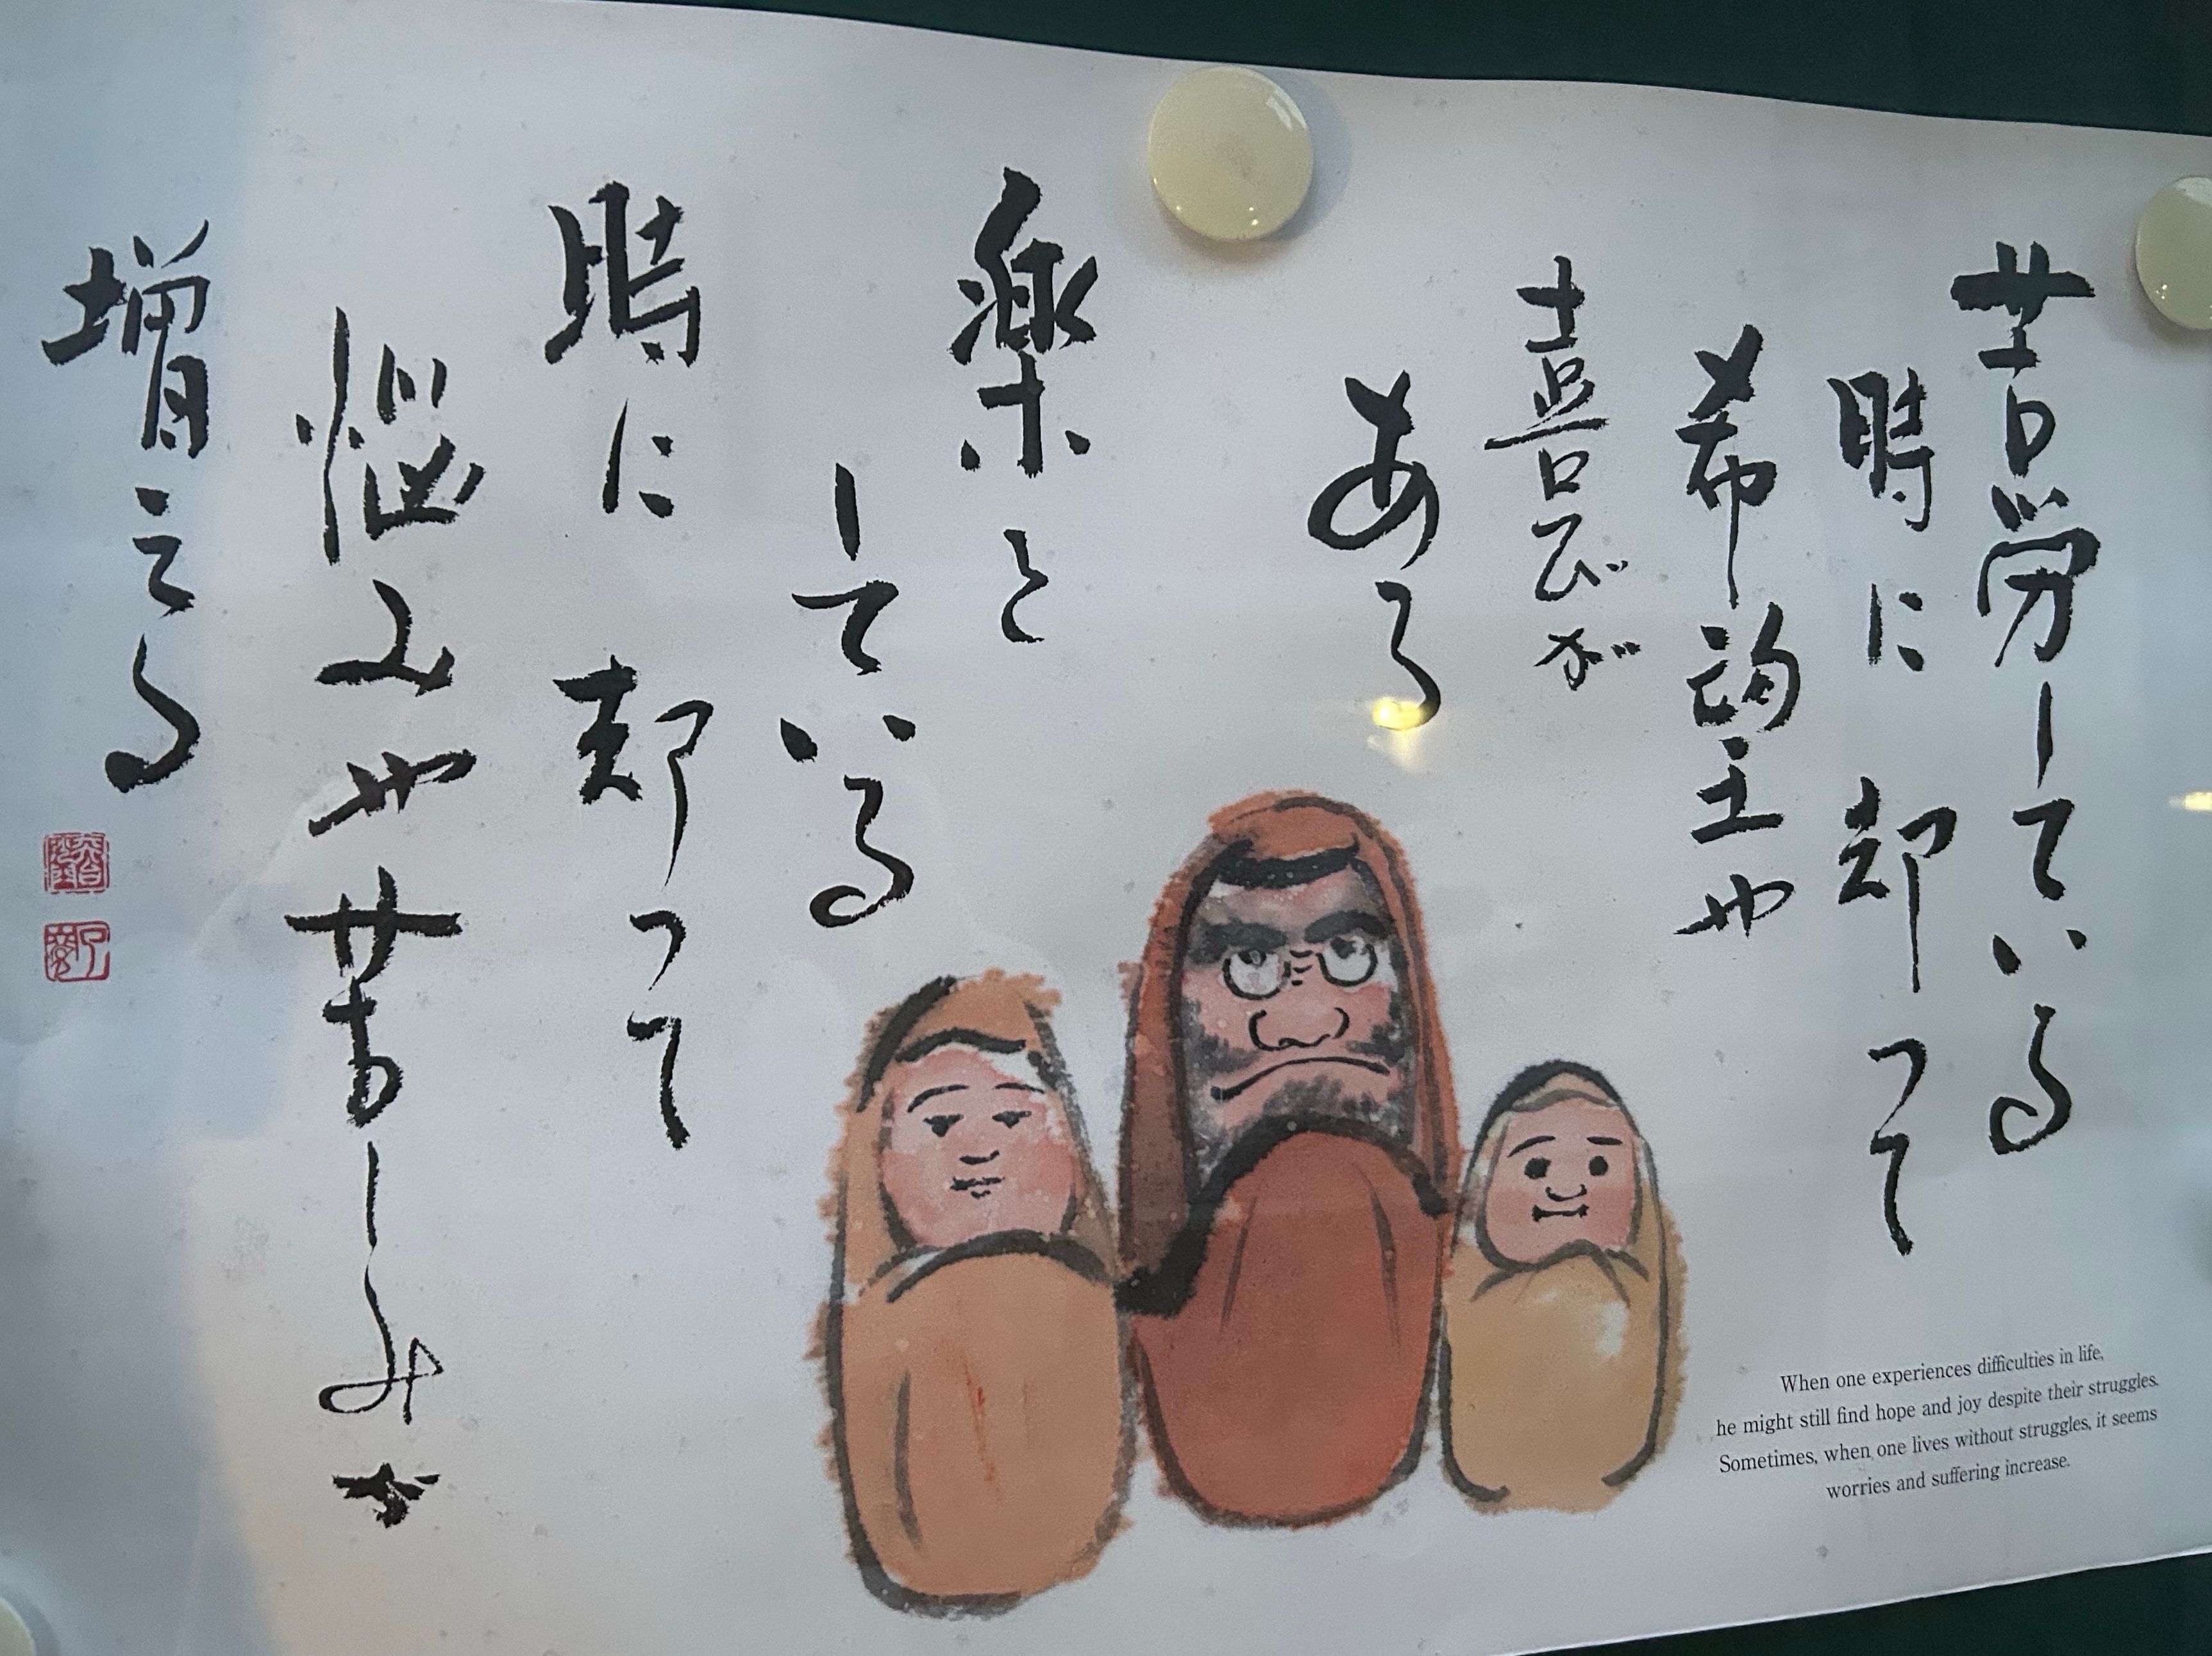 苦労している
時に却って
希望や
喜びが
ある
楽と
している
時に却って
悩みや苦しみが
増える
When one experiences difficulties in life,
he might still find hope and joy despite their struggles.
Sometimes, when one lives without struggles, it seems
worries and suffering increase.